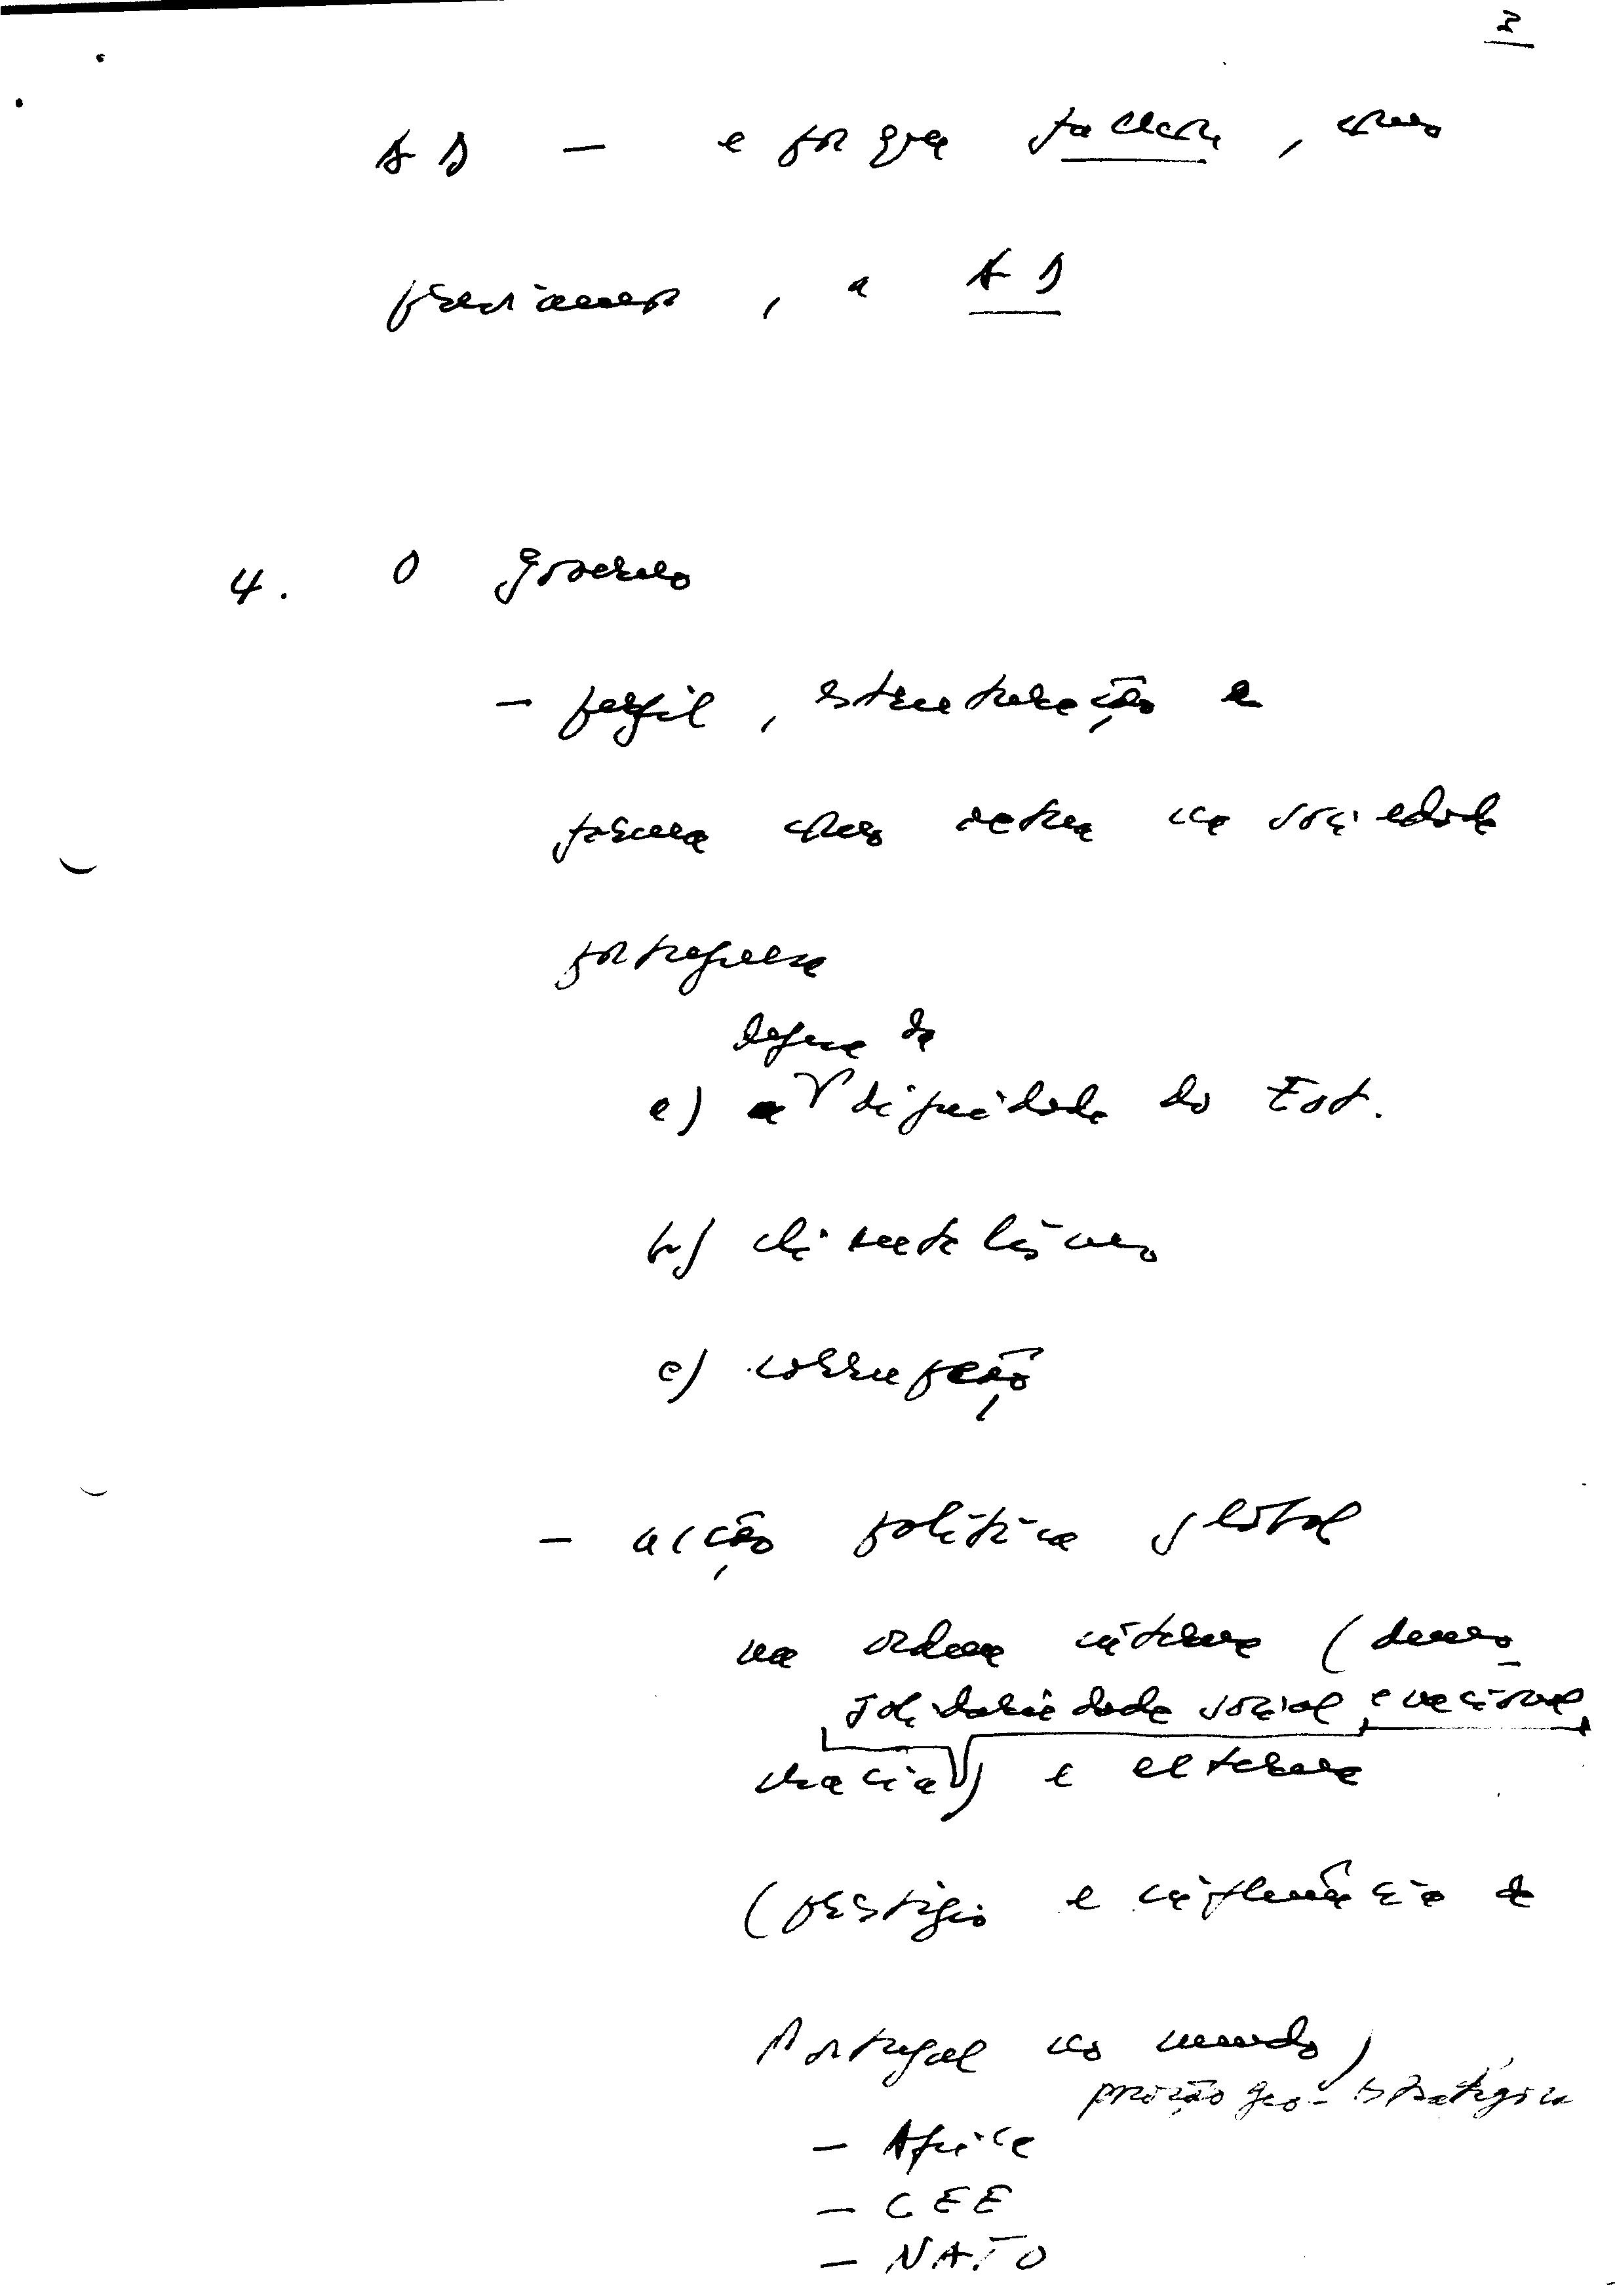 2
AD — e porque falhou, como
previamos, a AD
4. O governo
— perfil, estruturação e
forma como actua na sociedade
portuguesa
defesa da
a) dignidade do Est.
b) clientelismo
c) corrupção
— acção política global
na ordem interna (demo-
solidariedade social e nacional
cracia) e externa
(prestígio e influência de
Portugal no mundo)
posição geo-estratégica
— Africa
— CEE
— NATO